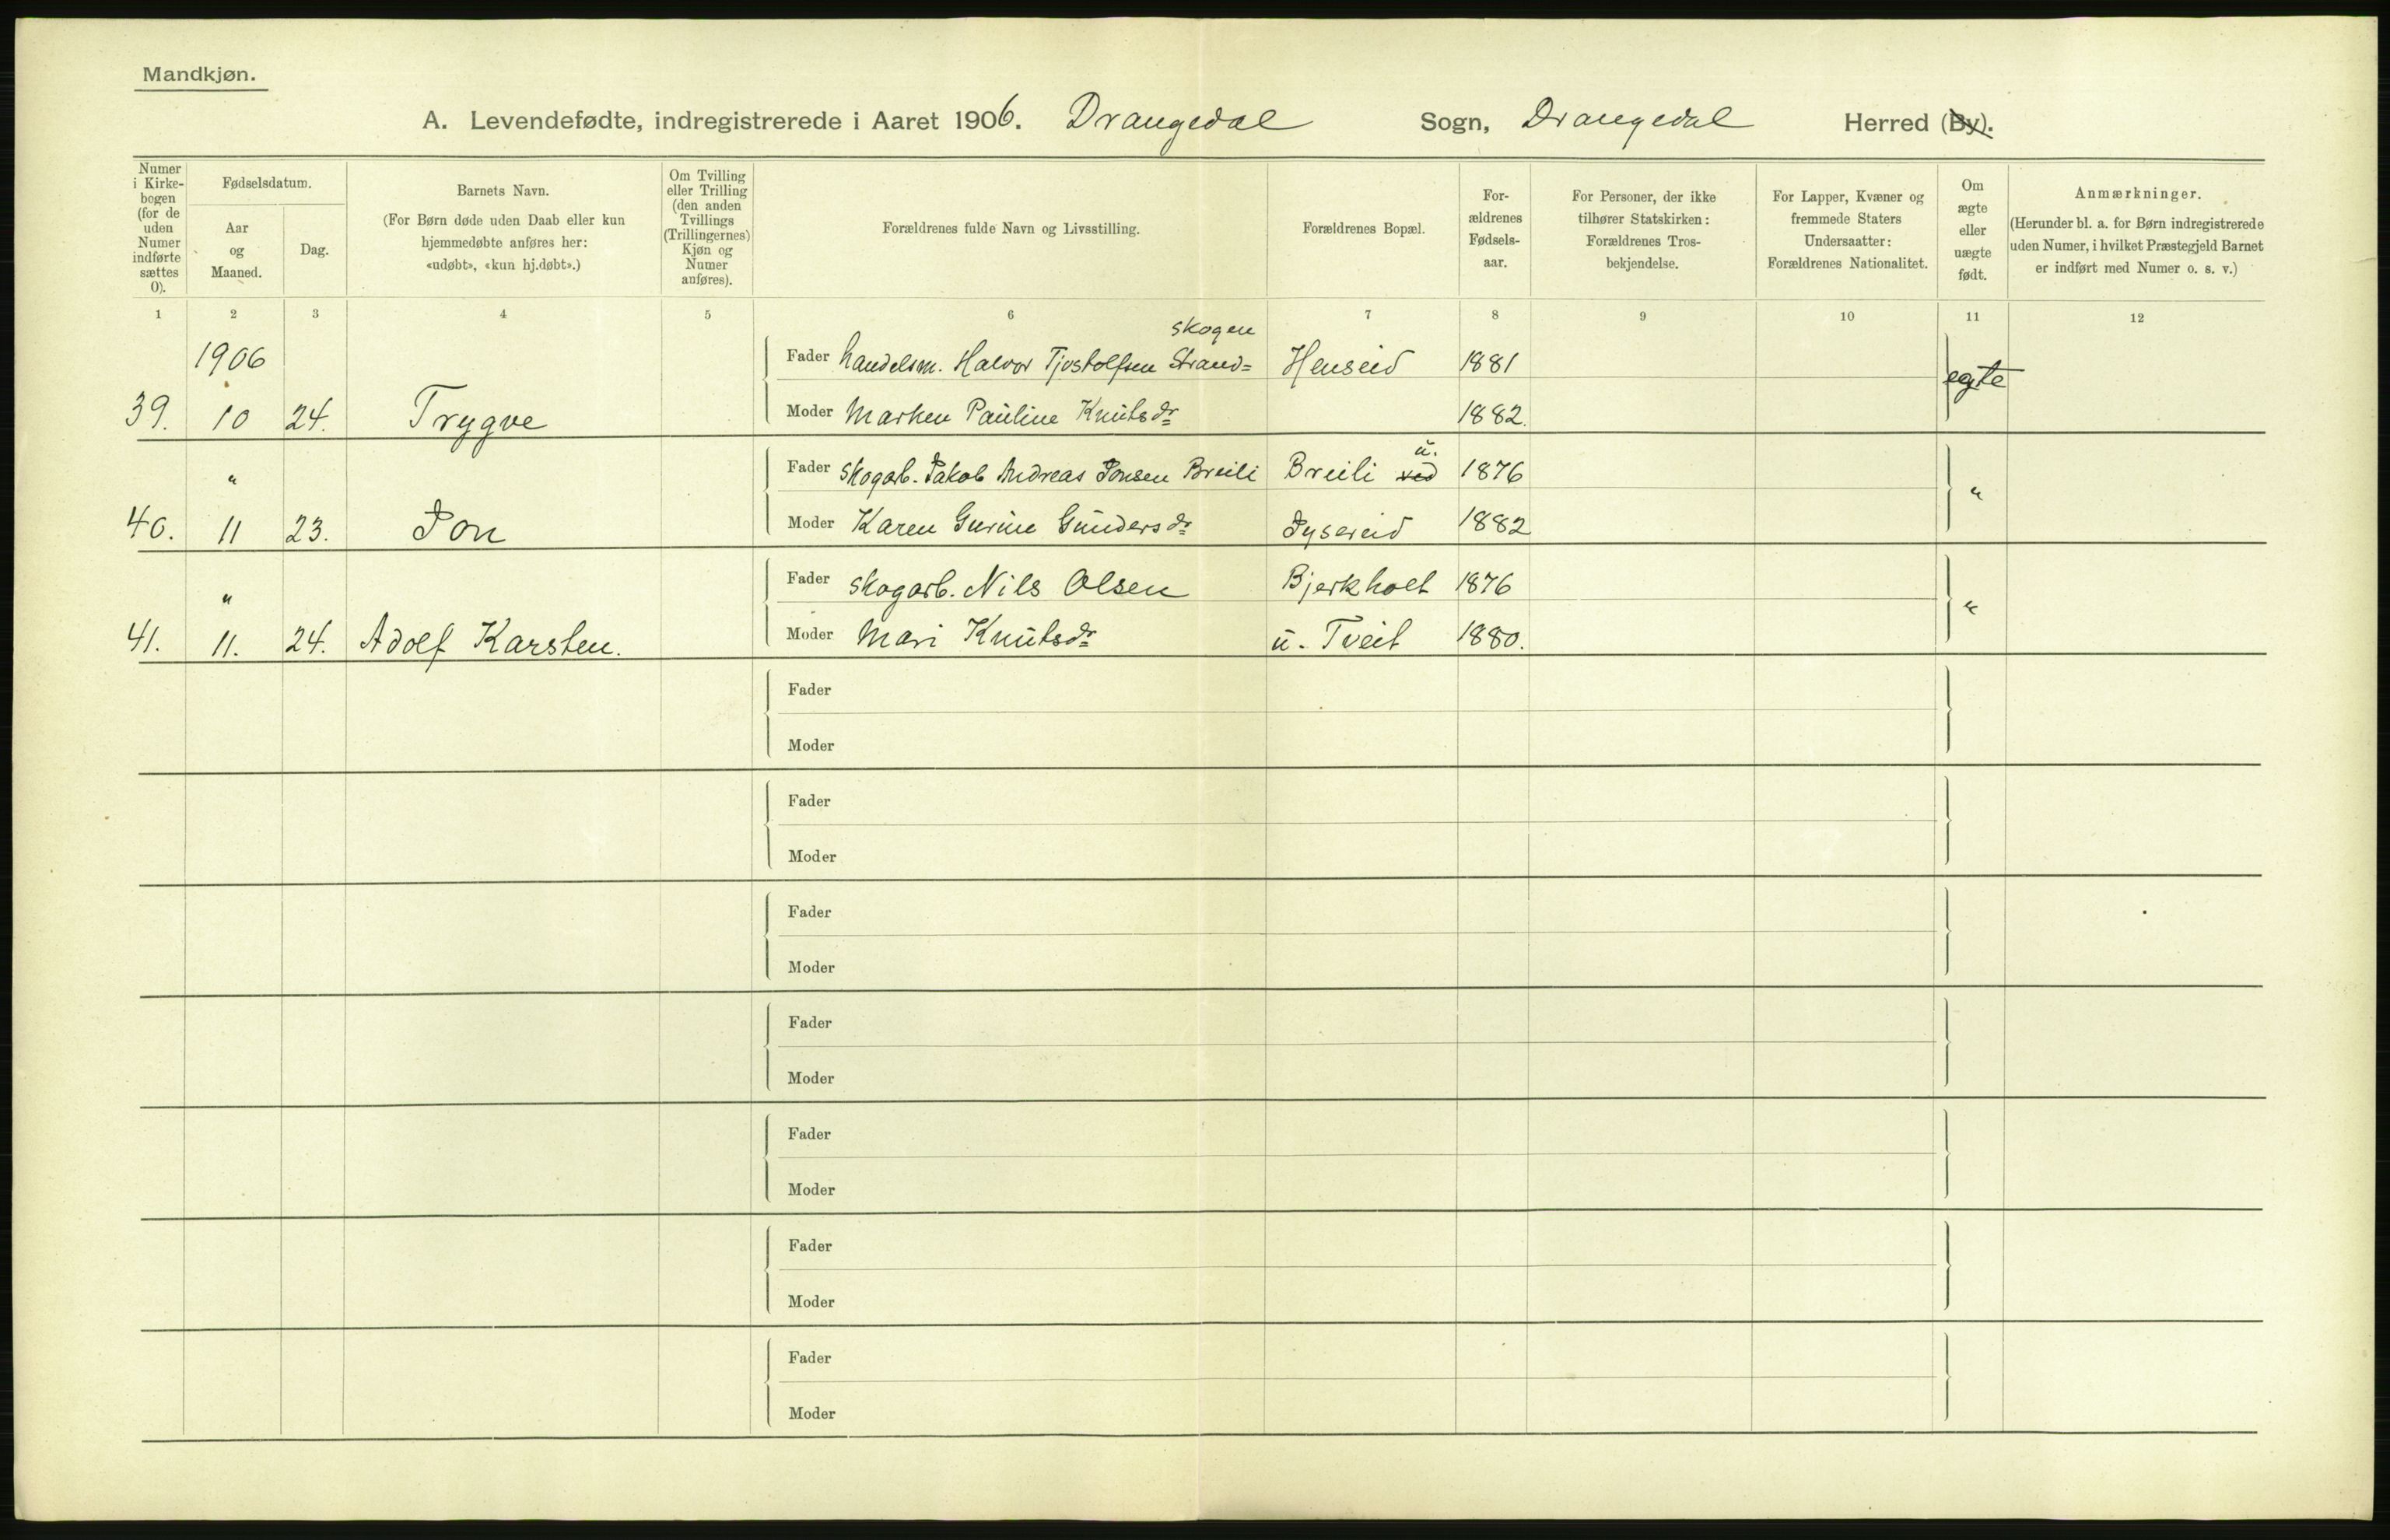 Mandkjøn.
A. Levendefødte, indregistrerede i Aaret 1906. Drangedal Sogn, Drangedal Herred (By).
Numer i Kirkebogen (for de uden Numer indførte sættes 0).
Fødselsdatum.
Aar og Maaned.
Dag.
Barnets Navn.
(For Børn døde uden Daab eller kun
hjemmedøbte anføres her:
«udøbt», «kun hj.døbt».)
Om Tvilling
eller Trilling
(den anden
Tvillings
(Trillingernes)
Kjøn og
Numer
anføres).
Forældrenes fulde Navn og Livsstilling.
Forældrenes Bopæl.
For-
ældrenes
Fødsels-
aar.
For Personer, der ikke
tilhører Statskirken:
Forældrenes Tros-
bekjendelse.
For Lapper, Kvæner og
fremmede Staters
Undersaatter:
Forældrenes Nationalitet.
Om
ægte
eller
uægte
født.
Anmærkninger.
(Herunder bl. a. for Børn indregistrerede
uden Numer, i hvilket Præstegjeld Barnet
er indført med Numer o. s. v.)
1 2 3 4 5 6 7 8 9 10 11 12
skogen
1906 Fader handelsm. Halvor Tjostolfsen Strand= Henseid 1881 egte
39. 10 24. Trygve Moder Marken Pauline Knutsdr 1882.
u.
" Fader Skogarb. Jakob Andreas Jonsen Breili Breili ved 1876 "
40. 11 23. Jon Moder Karen Gurine Gundersdr 1882
" Fader Skogarb. Nils Olsen Bjerkholt 1876 "
41. 11. 24. Adolf Karsten. Moder Mari Knutsdr u. Tveit 1880.
Fader
Moder
Fader
Moder
Fader
Moder
Fader
Moder
Fader
Moder
Fader
Moder
Fader
Moder